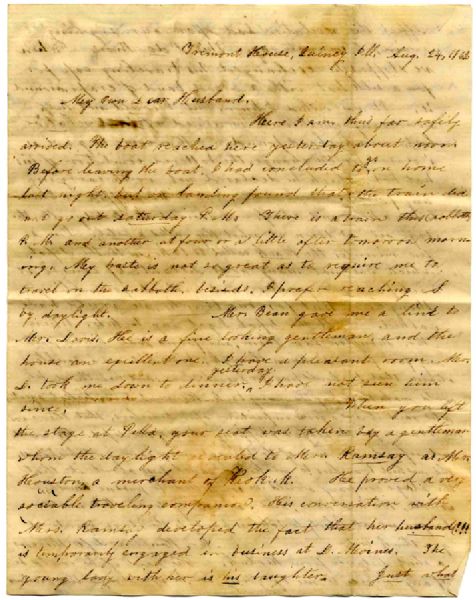 Tremont House, Quincy Ill. Aug. 24, 18
My Own Dear Husband.
Here I am thus far safely
arrived. The boat reached here yesterday about noon
Before leaving the boat, I had concluded to home
last night, but on landing found that the train did
not go out Saturday P.M. There is a train this sabbath
P.M. and another at four or a little after tomorrow morn
ing. My haste is not so great as to require me to
travel on the sabbath, besides, I prefer reaching
by daylight. Mr. Bean gave me a line to
Mr. He is a fine looking gentleman, and the
house an excellent one. I have a pleasant room. Mr.
took me down to dinner yesterday, I have not seen him
since. When you left
the stage at Pella, your seat was taken by a gentleman
whom the day light revealed to Mrs. Ramsay as Mr.
Houston, a merchant of Keokuk. He proved a very
sociable traveling companion. His conversation with
Mrs. Ramsay developed the fact that her husband
is temporarily engaged in business at D. Moines. The
young lady with her is his daughter. Just what